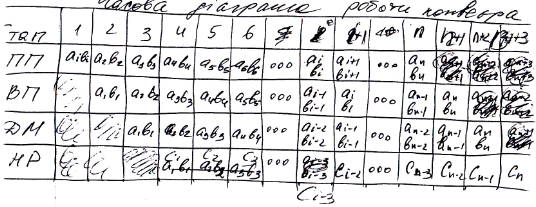 Часова діаграма роботи конвеєра
Такт 1 2 3 4 5 6 i i+1 ooo n n+1 n+2 n+3
ПП a1b1 a2b2 a3b3 a4b4 a5b5 a6b6 ooo ai bi ai+1 bi+1 ooo an bn
ВП a1b1 a2b2 a3b3 a4b4 a5b5 ooo ai-1 bi-1 ai bi ooo an-1 bn-1 an bn
ДМ a1b1 a2b2 a3b3 a4b4 ooo ai-2 bi-2 ai-1 bi-1 ooo an-2 bn-2 an-1 bn-1 an bn
НР C1 C2 C3 ooo Ci-2 ooo Cn-3 Cn-2 Cn-1 Cn
Ci-3